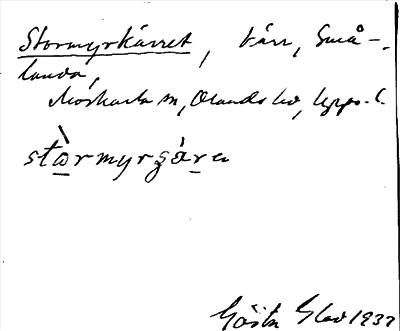 Stormyrkärret, kärr, Små-
landa,
Morkarla sn, Olands hd, Upps. l.
stòrmyrʂàrɐ
Gösta Glad 1937